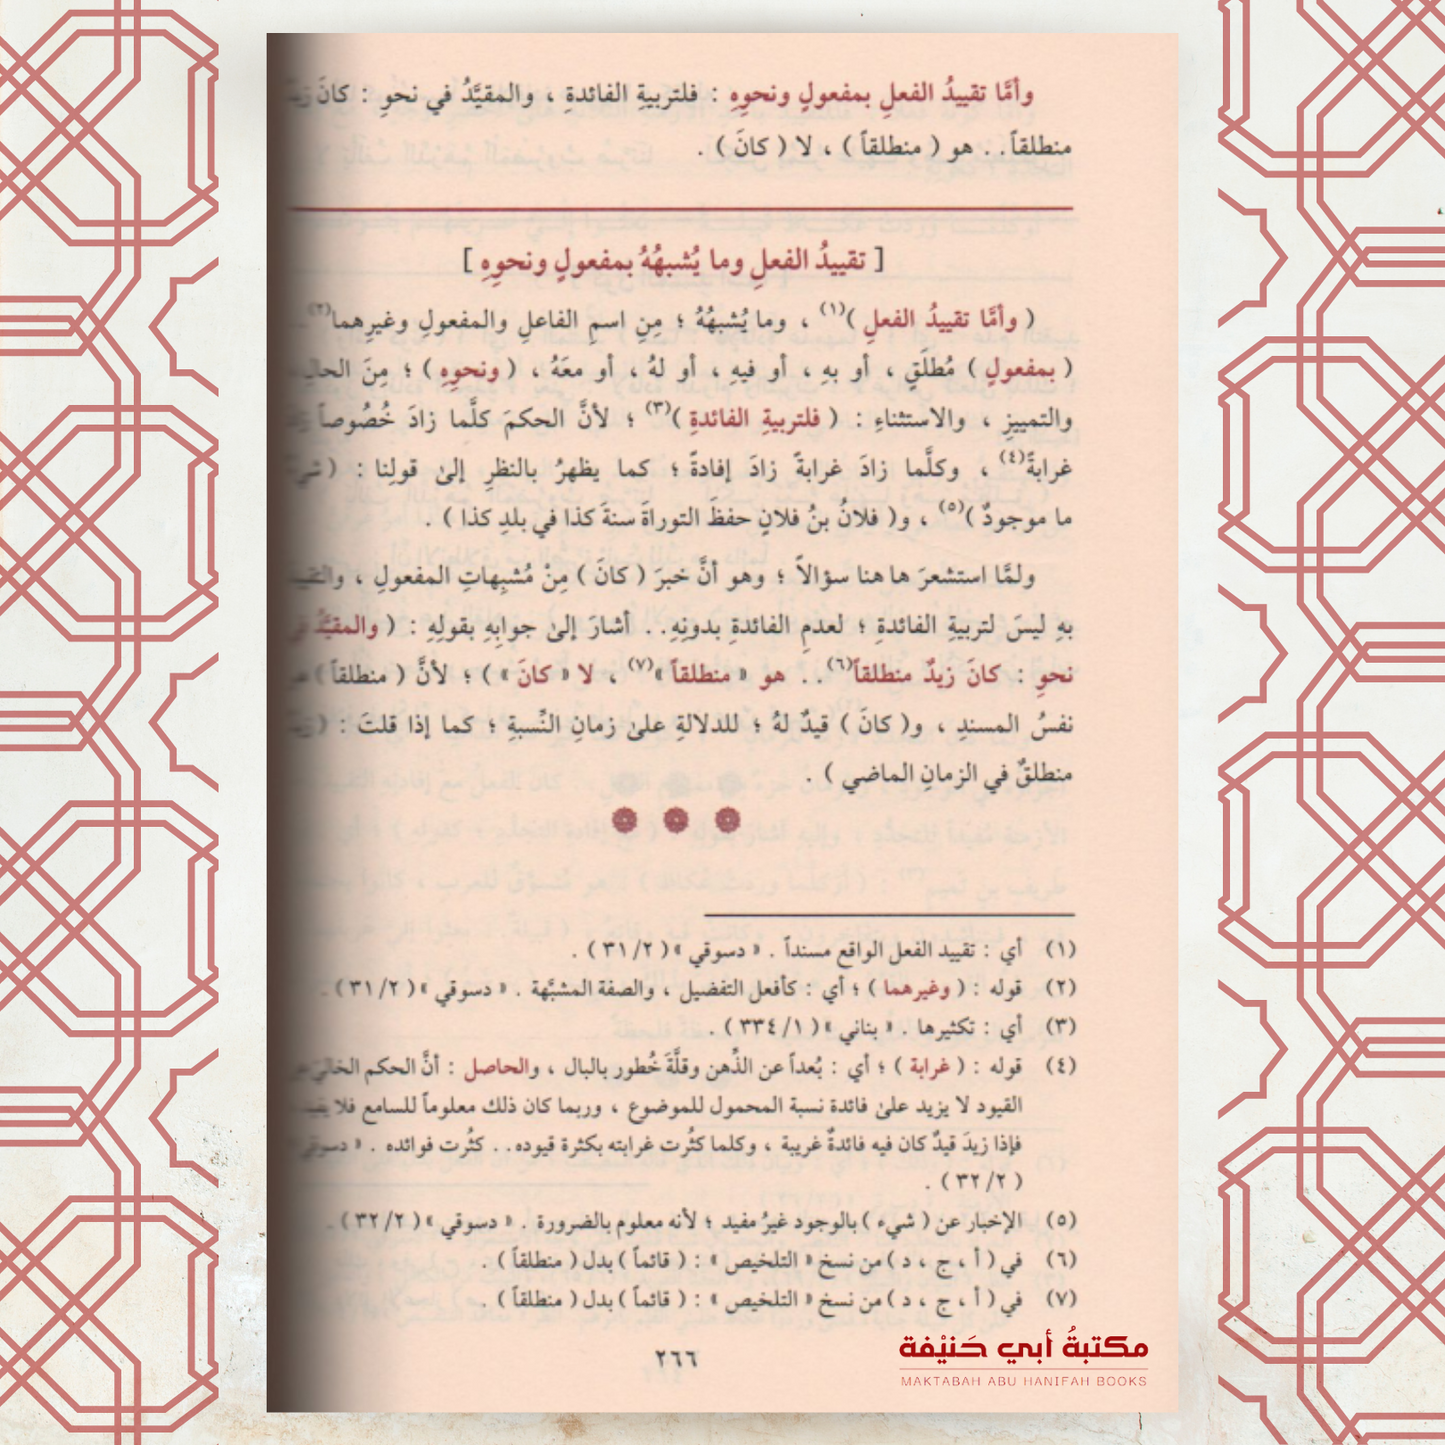 وأمَّا تقييدُ الفعلِ بمفعولٍ ونحوِهِ : فلتربيةِ الفائدةِ ، والمقيَّدُ في نحوِ : كانَ زيدٌ
منطلقاً . . هو ( منطلقاً ) ، لا ( كانَ ) .
[ تقييدُ الفعلِ وما يُشبهُهُ بمفعولٍ ونحوِهِ ]
( وأمَّا تقييدُ الفعلِ )(١) ، وما يُشبهُهُ ؛ مِنِ اسمِ الفاعلِ والمفعولِ وغيرِهما(٢) . .
( بمفعولٍ ) مُطلَقٍ ، أو بهِ ، أو فيهِ ، أو لهُ ، أو معَهُ ، ( ونحوِهِ ) ؛ مِنَ الحالِ
والتمييزِ ، والاستثناءِ : ( فلتربيةِ الفائدةِ )(٣) ؛ لأنَّ الحكمَ كلَّما زادَ خُصُوصاً زادَ
غرابةً(٤) ، وكلَّما زادَ غرابةً زادَ إفادةً ؛ كما يظهرُ بالنظرِ إلىٰ قولِنا : ( شيءٌ
ما موجودٌ )(٥) ، و( فلانُ بنُ فلانٍ حفظَ التوراةَ سنةَ كذا في بلدِ كذا ) .
ولمَّا استشعرَ هاهنا سؤالاً ؛ وهو أنَّ خبرَ ( كانَ ) مِنْ مُشبِهاتِ المفعولِ ، والتقييدَ
بهِ ليسَ لتربيةِ الفائدةِ ؛ لعدمِ الفائدةِ بدونِهِ . . أشارَ إلىٰ جوابِهِ بقولِهِ : ( والمقيَّدُ في
نحوِ : كانَ زيدٌ منطلقاً(٦) . . هو « منطلقاً »(٧) ، لا « كانَ » ) ؛ لأنَّ ( منطلقاً ) هو
نفسُ المسندِ ، و( كانَ ) قيدٌ لهُ ؛ للدلالةِ علىٰ زمانِ النِّسبةِ ؛ كما إذا قلتَ : ( زيدٌ
منطلقٌ في الزمانِ الماضي ) .
(١) أي : تقييد الفعل الواقع مسنداً . « دسوقي » ( ٣١/٢ ) .
(٢) قوله : ( وغيرهما ) ؛ أي : كأفعل التفضيل ، والصفة المشبَّهة . « دسوقي » ( ٣١/٢ ) .
(٣) أي : تكثيرها . « بناني » ( ٣٣٤/١ ) .
(٤) قوله : ( غرابة ) ؛ أي : بُعداً عن الذِّهن وقلَّةَ خُطور بالبال ، والحاصل : أنَّ الحكم الخالي عن
القيود لا يزيد علىٰ فائدة نسبة المحمول للموضوع ، وربما كان ذلك معلوماً للسامع فلا يفيد
فإذا زيدَ قيدٌ كان فيه فائدةٌ غريبة ، وكلما كثُرت غرابته بكثرة قيوده . . كثُرت فوائده . « دسوقي »
( ٣٢/٢ ) .
(٥) الإخبار عن ( شيء ) بالوجود غيرُ مفيد ؛ لأنه معلوم بالضرورة . « دسوقي » ( ٣٢/٢ ) .
(٦) في ( أ ، ج ، د ) من نسخ « التلخيص » : ( قائماً ) بدل ( منطلقاً ) .
(٧) في ( أ ، ج ، د ) من نسخ « التلخيص » : ( قائماً ) بدل ( منطلقاً ) .
٢٦٦
مكتبةُ أبي حَنيْفة
MAKTABAH ABU HANIFAH BOOKS